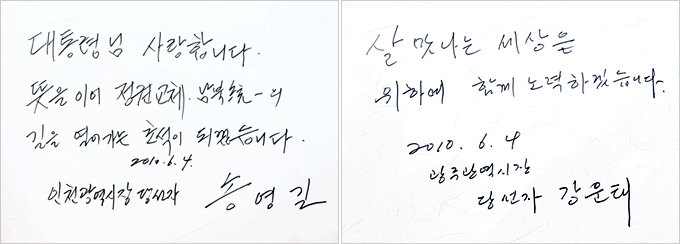 대통령님 사랑합니다.
뜻을 이어 정권교체, 남북통일의
길을 열어가는 초석이 되겠습니다.
2010.6.4.
인천광역시장 당선자 송영길
살맛나는 세상을
위하여 함께 노력하겠습니다.
2010. 6. 4
광주광역시장
당선자 강운태